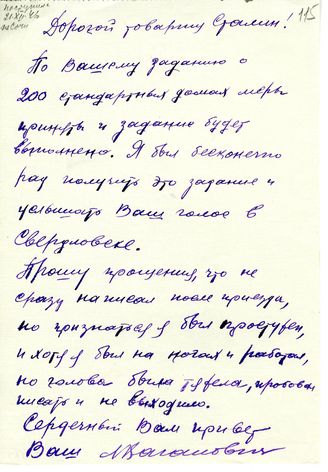 поступило
115
Дорогой товарищ Сталин!
По Вашему заданию о
200 стандартных домах меры
приняты и задание будет
выполнено. Я был бесконечно
рад получить это задание и
услышать Ваш голос в
Свердловске.
Прошу прощения, что не
сразу написал после приезда,
но признаться я был простужен,
и хотя я был на ногах и работал,
но голова была тяжела, пробовал
писать и не выходило.
Сердечный Вам привет
Ваш Л Каганович